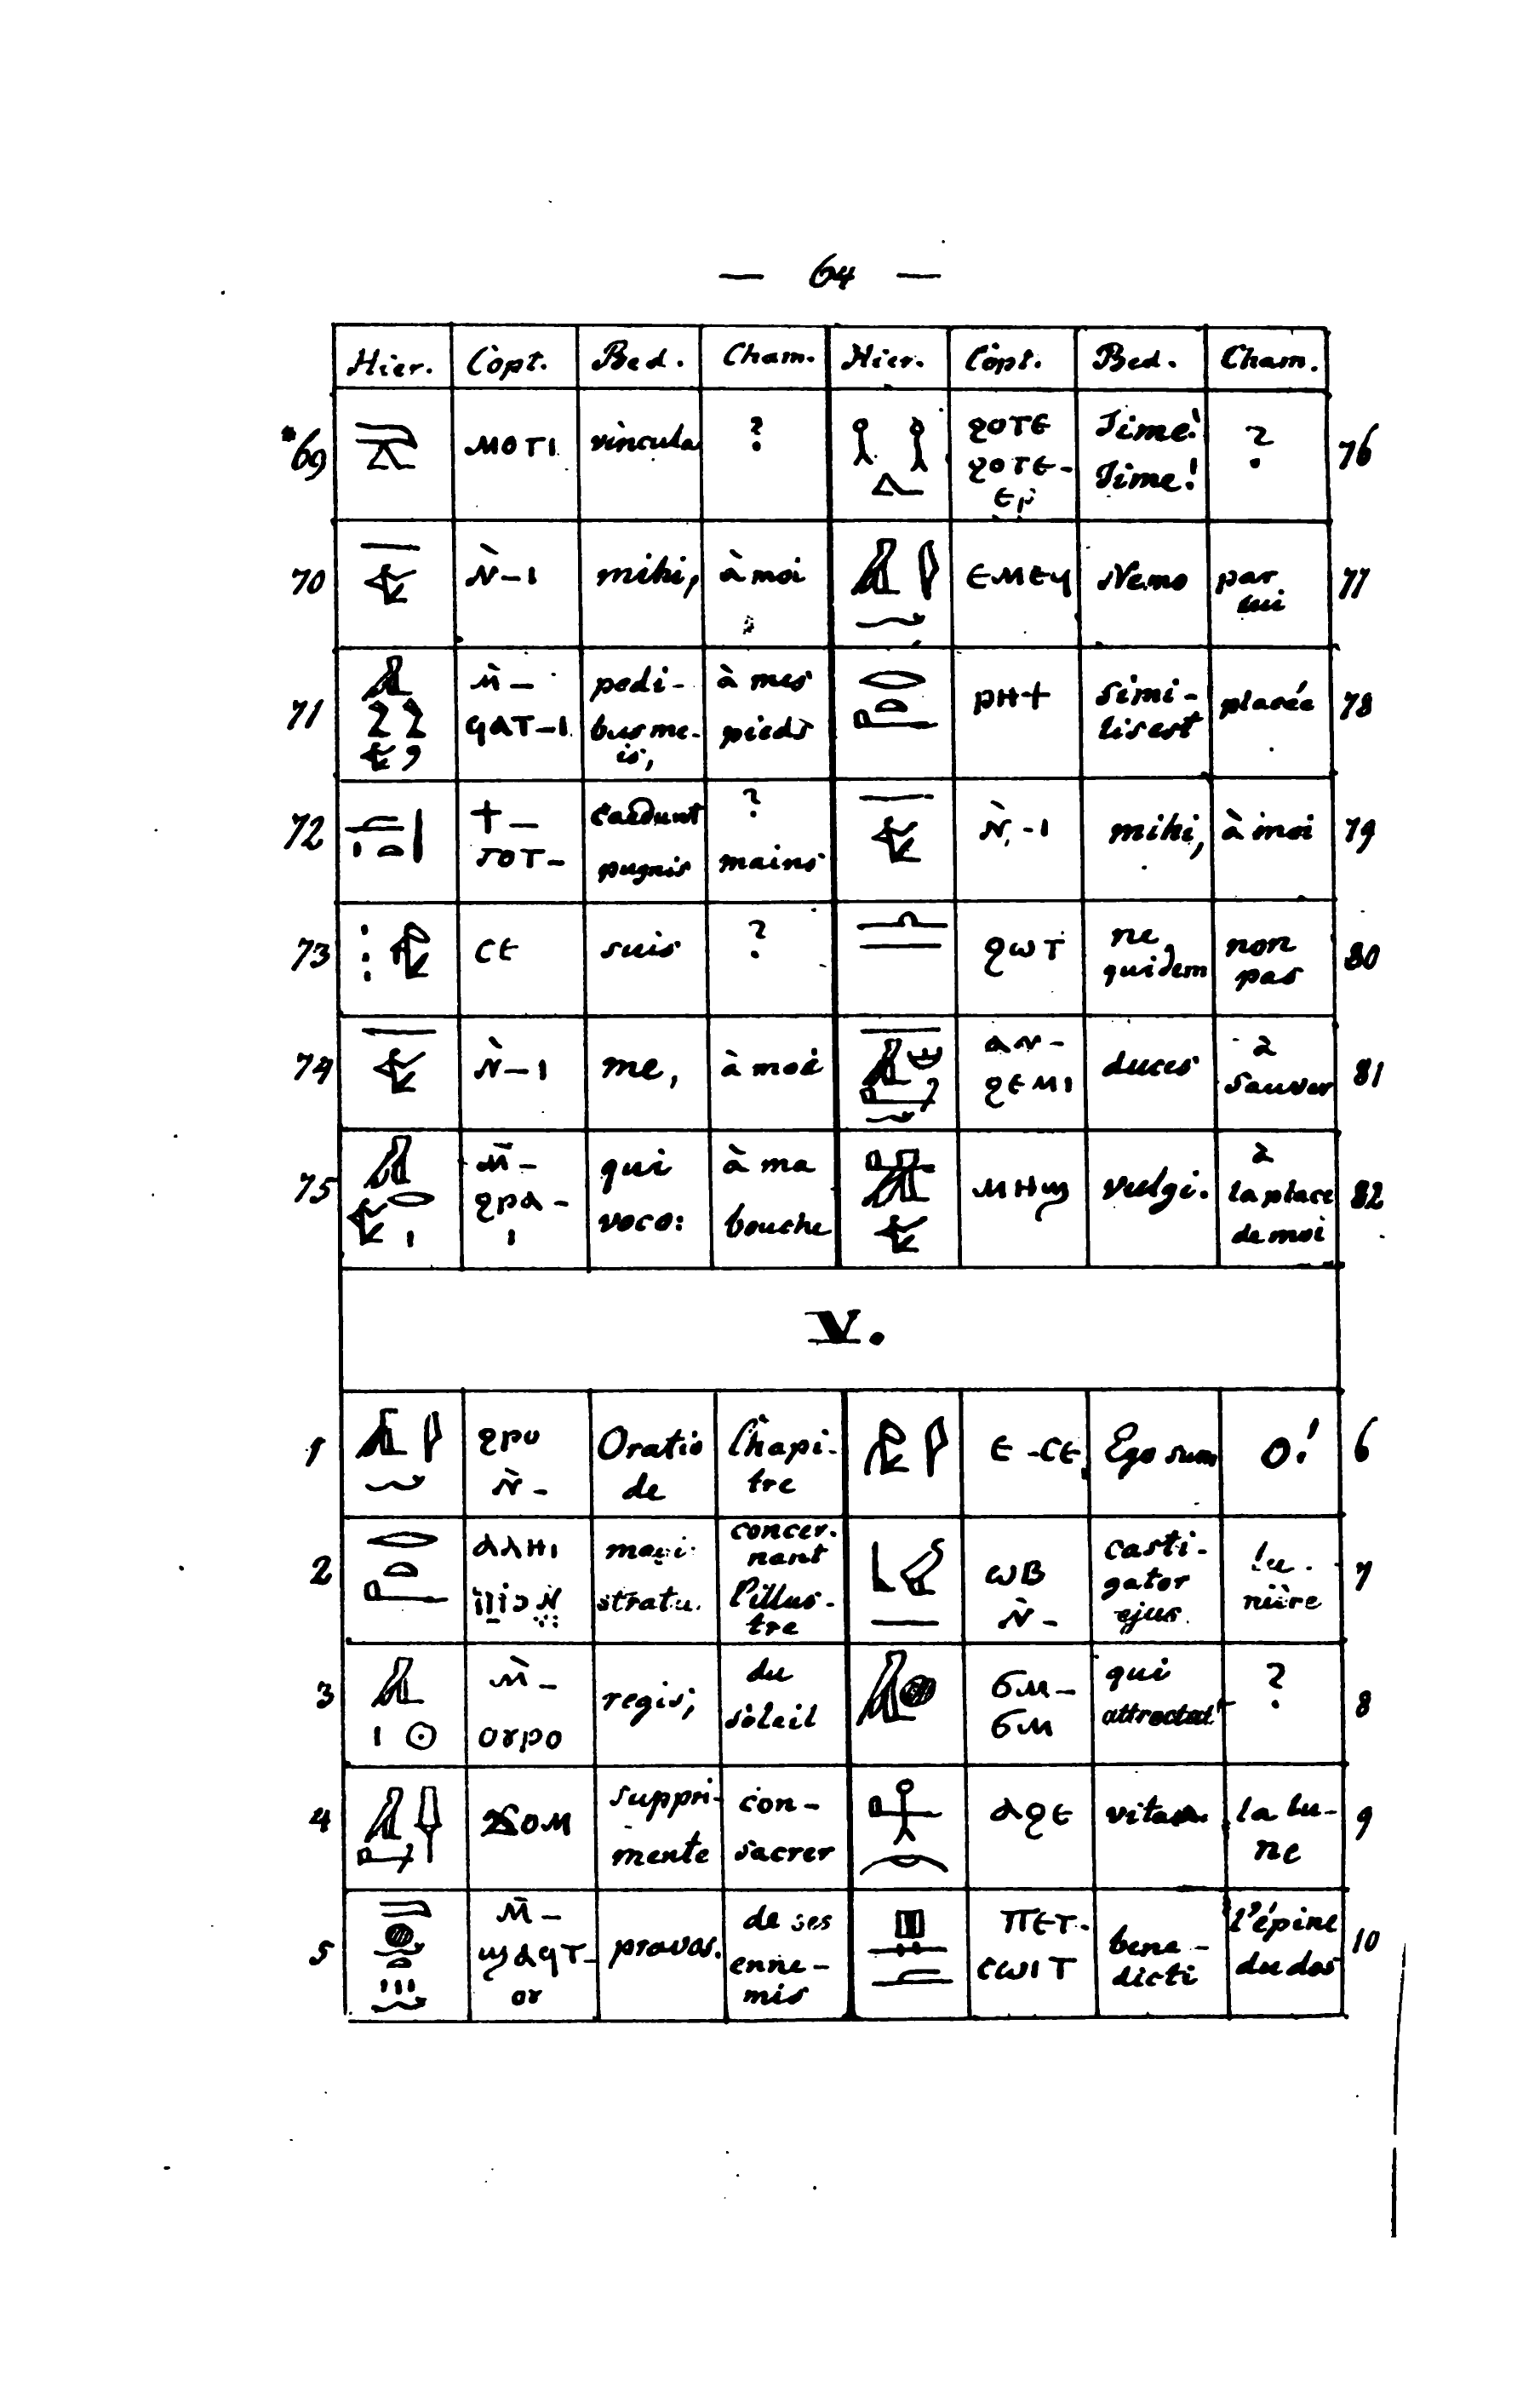 — 64 —
Hier. Copt. Bed. Cham. Hier. Copt. Bed. Cham.
*69 ⲙⲟⲧⲓ vincula ? ϩⲟⲧⲉ ϩⲟⲧⲉ-ⲉⲣ Time! Time! ? 76
70 ⲛ̀-ⲓ mihi, à moi ⲉⲙⲉϥ Nemo par lui 77
71 ⲙ̀-ϥⲁⲧ-ⲓ pedi-bus me-is, à mes pieds ⲣⲏϯ simi-lis est placée 78
72 ϯ-ⲧⲟⲧ- caedunt pugnis ? mains ⲛ̀-ⲓ mihi, à moi 79
73 ⲥⲉ suis ? ϩⲱⲧ ne quidem non pas 80
74 ⲛ̀-ⲓ me, à moi ⲁⲛ-ϩⲉⲙⲓ duces à sauver 81
75 ⲙ̄-ϩⲣⲁ-ⲓ qui voco: à ma bouche ⲙⲏϣ vulgi. à la place de moi 82
V.
1 ϩⲣⲩ ⲛ̀- Oratio de Chapi-tre ⲉ-ⲥⲉ Ego sum O! 6
2 ⲁⲗⲏⲓ concer-nant l'illus-tre ⲱⲃ ⲛ̀- casti-gator ejus 7
3 ⲙ̀-ⲟⲩⲣⲟ regis, du soleil ϭⲙ-ϭⲙ qui attrectat ? 8
4 ϫⲟⲙ suppri-mente con-sacrer ⲁϩⲉ vitam la lu-ne 9
5 ⲙ̄-ϣⲁϥⲧ-ⲟⲩ pravos. de ses enne-mis ⲡⲉⲧ-ⲥⲱⲓⲧ bene-dicti l'épine du dos 10